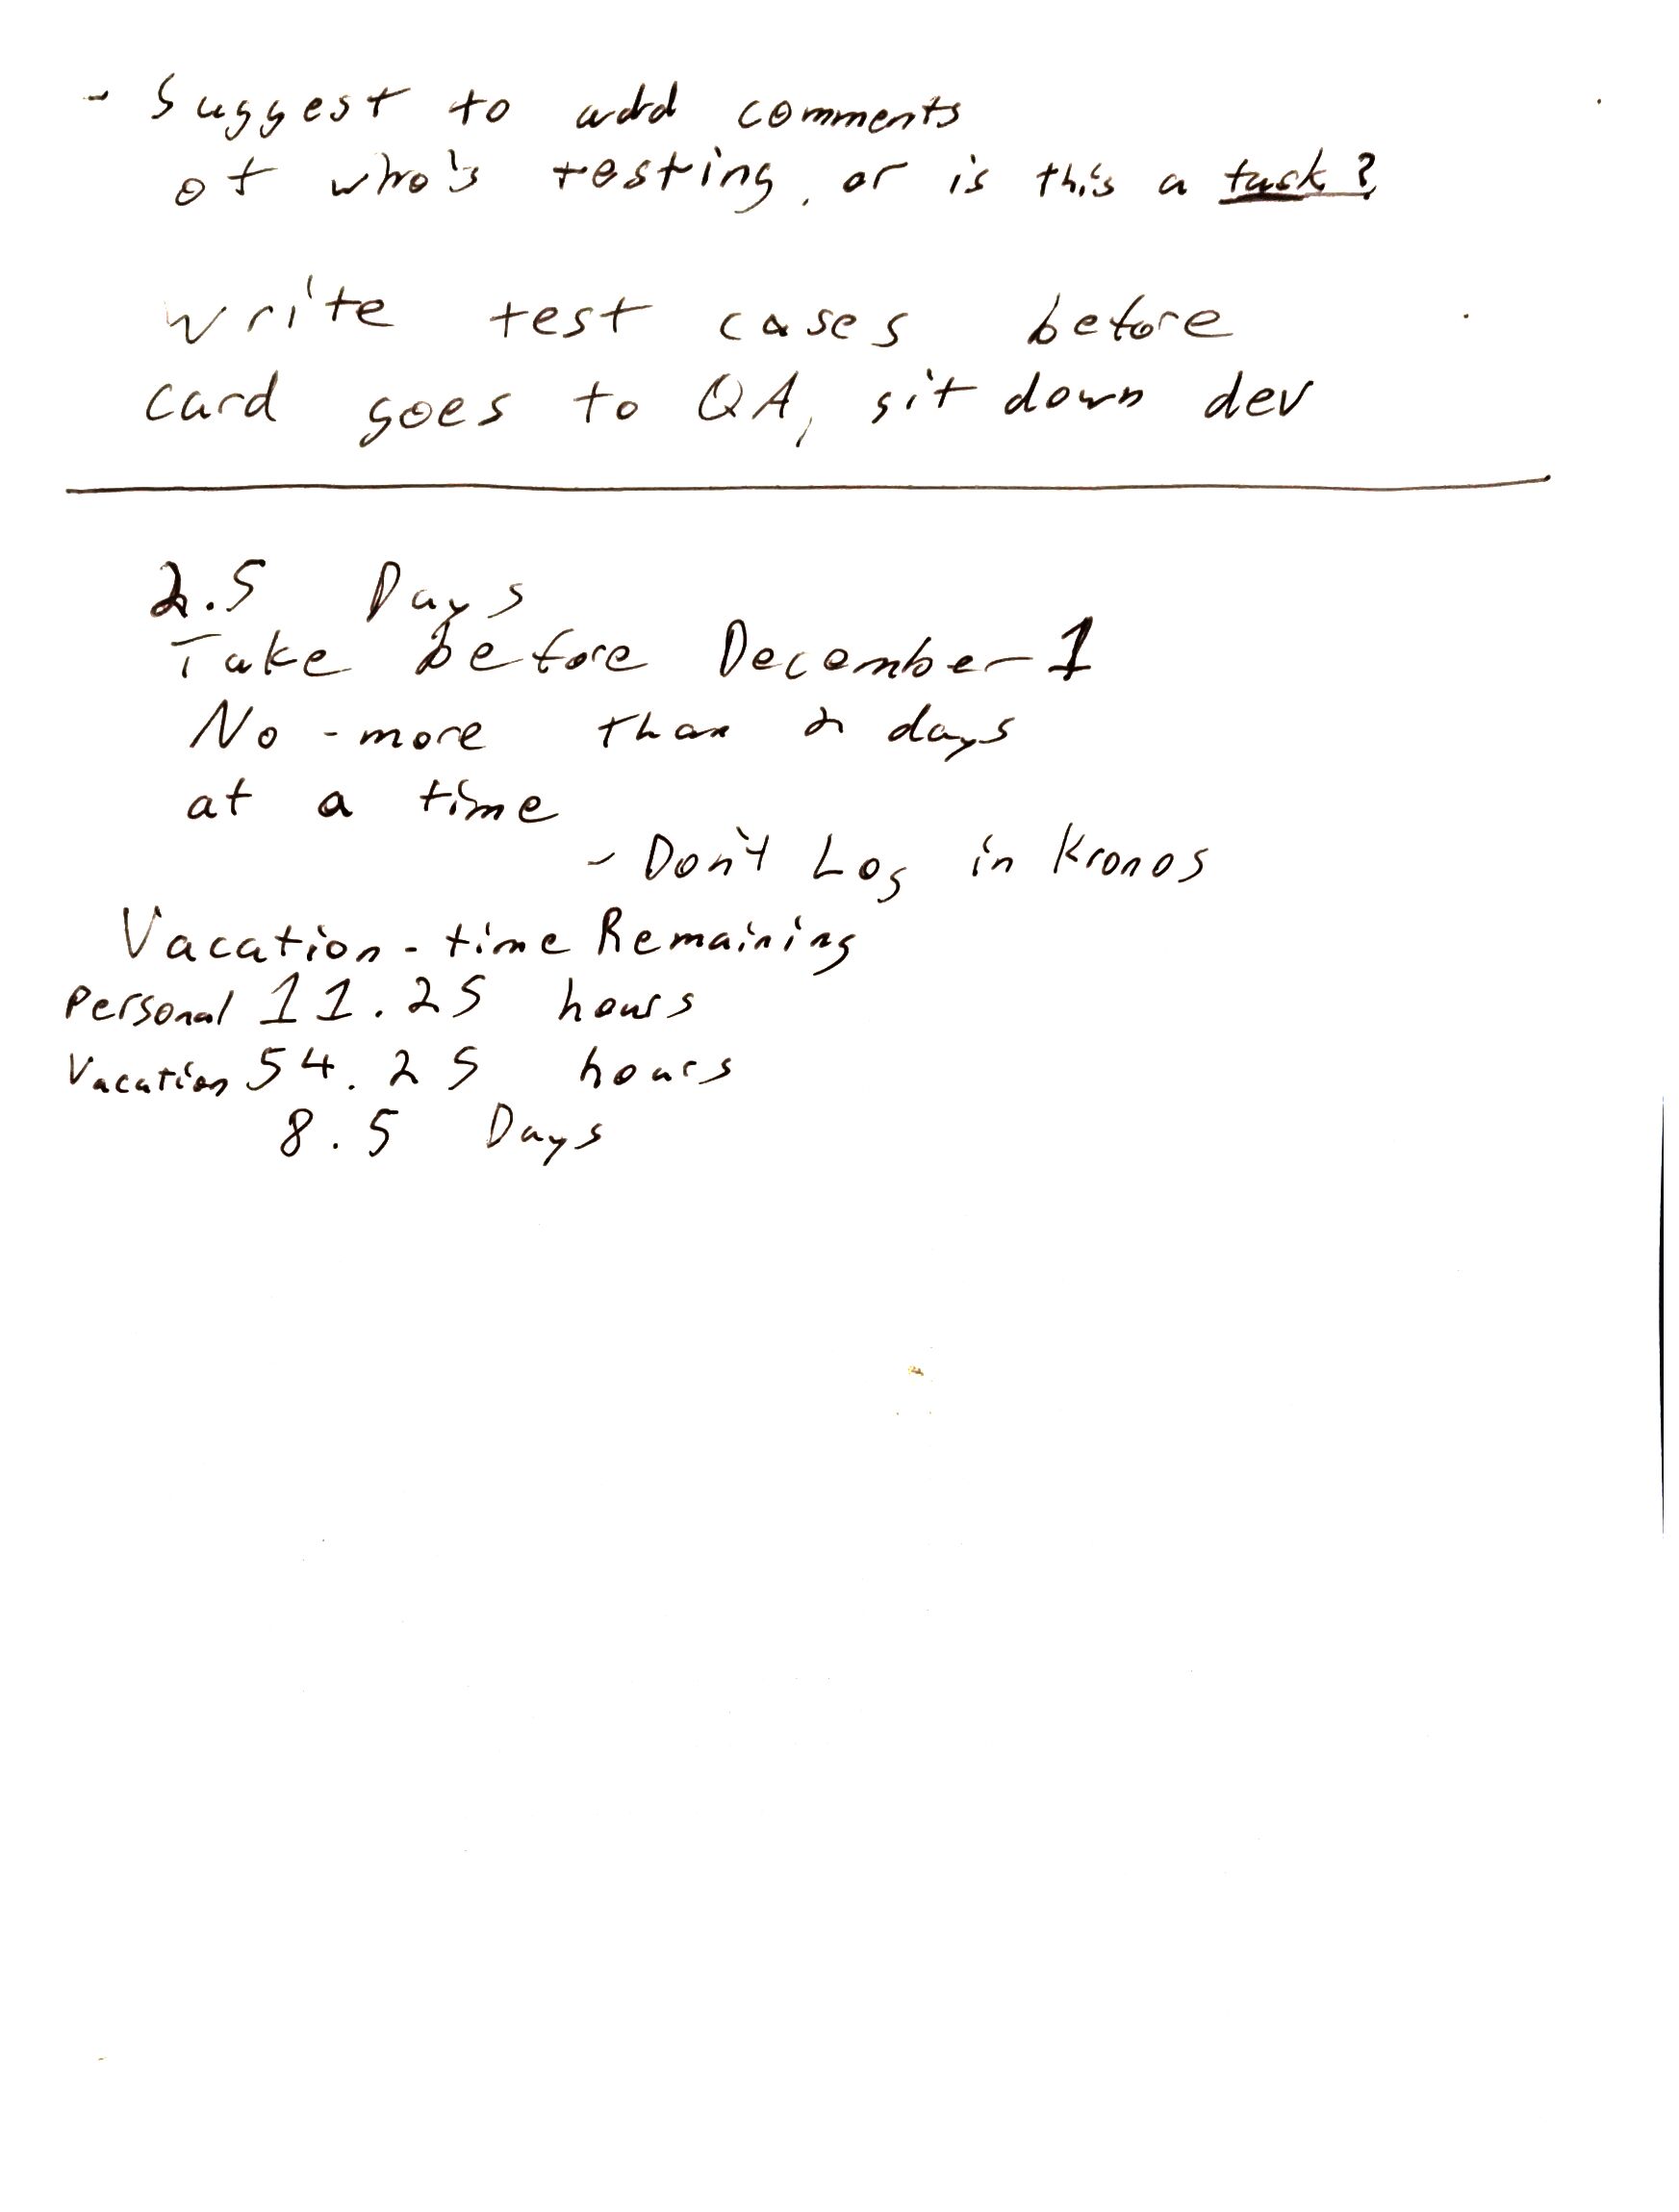 - Suggest to add comments
of who's testing, or is this a task?
write test cases before
card goes to QA, sit down dev
2.5 Days
Take before December 1
No-more than 2 days
at a time
- Don't Log in Kronos
Vacation-time Remaining
Personal 11.25 hours
Vacation 54.25 hours
8.5 Days